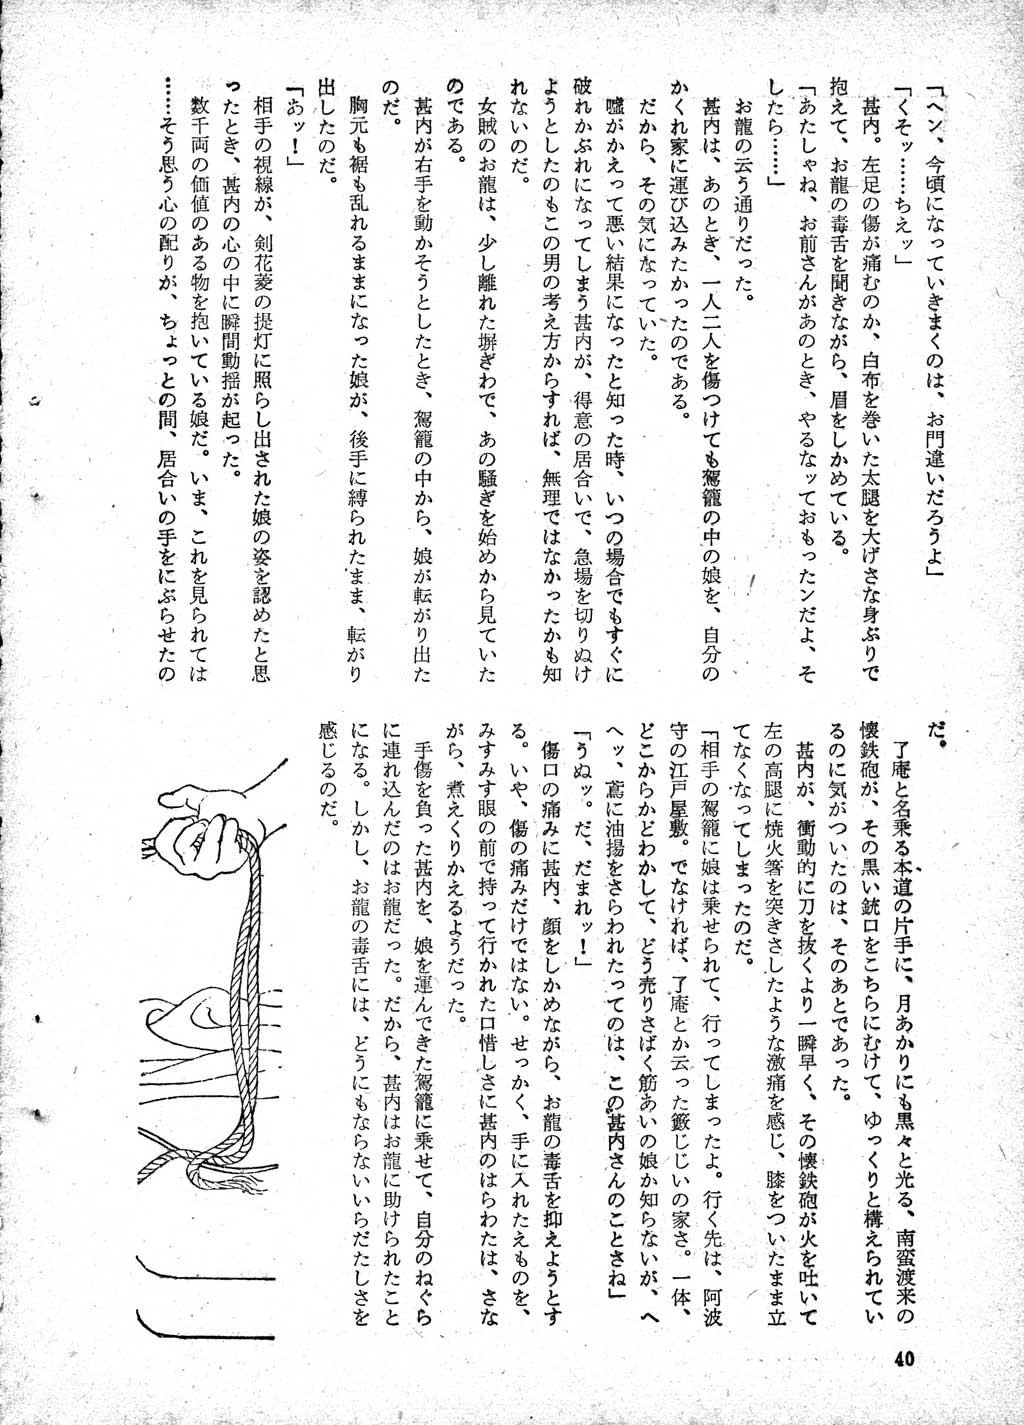 「ヘン、今頃になっていきまくのは、お門違いだろうよ」
「くそッ……ちえッ」
甚内。左足の傷が痛むのか、白布を巻いた太腿を大げさな身ぶりで
抱えて、お龍の毒舌を聞きながら、眉をしかめている。
「あたしゃね、お前さんがあのとき、やるなッておもったンだよ、そ
したら……」
お龍の云う通りだった。
甚内は、あのとき、一人二人を傷つけても駕籠の中の娘を、自分の
かくれ家に運び込みたかったのである。
だから、その気になっていた。
嘘がかえって悪い結果になったと知った時、いつの場合でもすぐに
破れかぶれになってしまう甚内が、得意の居合いで、急場を切りぬけ
ようとしたのもこの男の考え方からすれば、無理ではなかったかも知
れないのだ。
女賊のお龍は、少し離れた塀ぎわで、あの騒ぎを始めから見ていた
のである。
甚内が右手を動かそうとしたとき、駕籠の中から、娘が転がり出た
のだ。
胸元も裾も乱れるままになった娘が、後手に縛られたまま、転がり
出したのだ。
「あッ！」
相手の視線が、剣花菱の提灯に照らし出された娘の姿を認めたと思
ったとき、甚内の心の中に瞬間動揺が起った。
数千両の価値のある物を抱いている娘だ。いま、これを見られては
……そう思う心の配りが、ちょっとの間、居合いの手をにぶらせたの
だ。
了庵と名乗る本道の片手に、月あかりにも黒々と光る、南蛮渡来の
懐鉄砲が、その黒い銃口をこちらにむけて、ゆっくりと構えられてい
るのに気がついたのは、そのあとであった。
甚内が、衝動的に刀を抜くより一瞬早く、その懐鉄砲が火を吐いて
左の高腿に焼火箸を突きさしたような激痛を感じ、膝をついたまま立
てなくなってしまったのだ。
「相手の駕籠に娘は乗せられて、行ってしまったよ。行く先は、阿波
守の江戸屋敷。でなければ、了庵とか云った籔じじいの家さ。一体、
どこからかどわかして、どう売りさばく筋あいの娘か知らないが、へ
ヘッ、鳶に油揚をさらわれたってのは、この甚内さんのことさね」
「うぬッ。だ、だまれッ！」
傷口の痛みに甚内、顔をしかめながら、お龍の毒舌を抑えようとす
る。いや、傷の痛みだけではない。せっかく、手に入れたえものを、
みすみす眼の前で持って行かれた口惜しさに甚内のはらわたは、さな
がら、煮えくりかえるようだった。
手傷を負った甚内を、娘を運んできた駕籠に乗せて、自分のねぐら
に連れ込んだのはお龍だった。だから、甚内はお龍に助けられたこと
になる。しかし、お龍の毒舌には、どうにもならないいらだたしさを
感じるのだ。
40